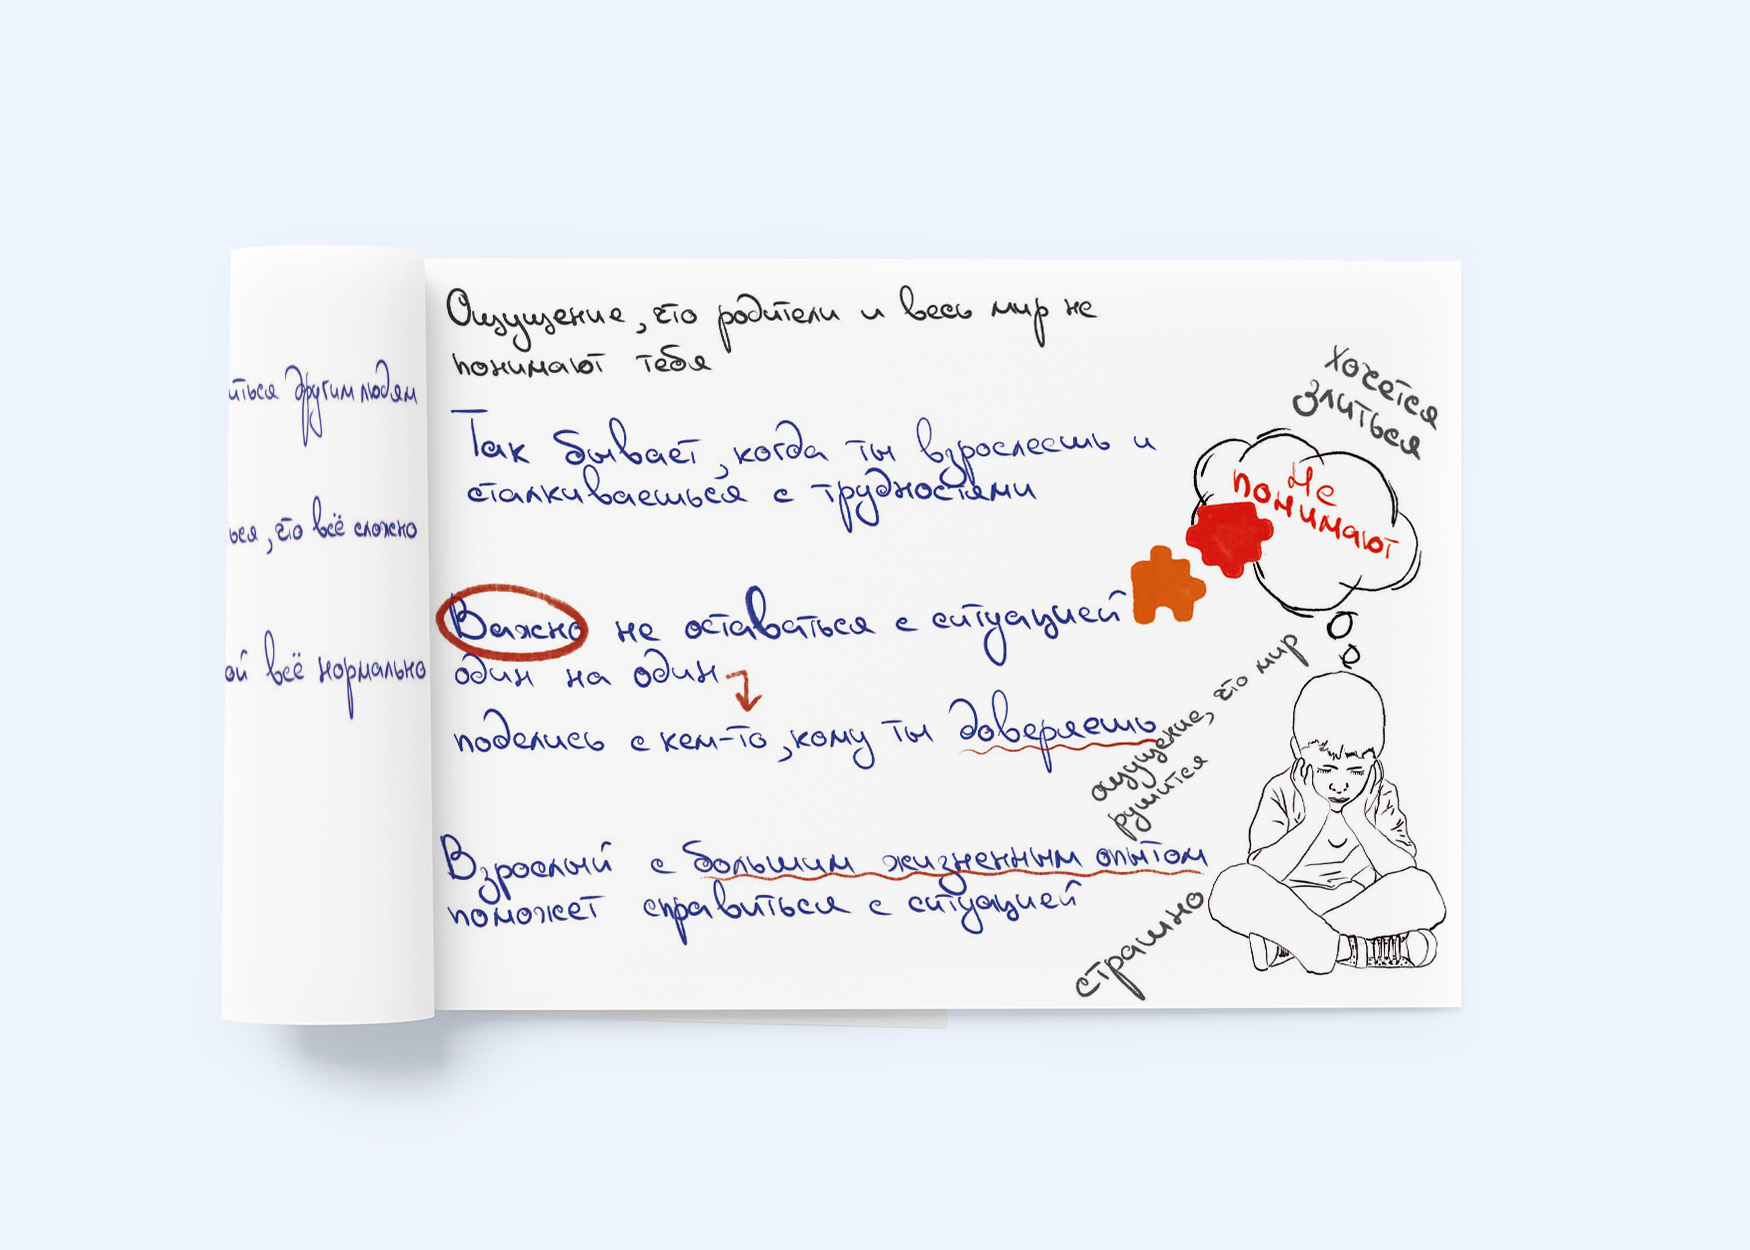 иться другим людям
ься, что всё сложно
ой всё нормально
Ощущение, что родители и весь мир не
понимают тебя
Так бывает, когда ты взрослеешь и
сталкиваешься с трудностями
Важно не оставаться с ситуацией
один на один
поделись с кем-то, кому ты доверяешь
Взрослый с большим жизненным опытом
поможет справиться с ситуацией
хочется
злиться
Не
понимают
ощущение, что мир
рушится
страшно